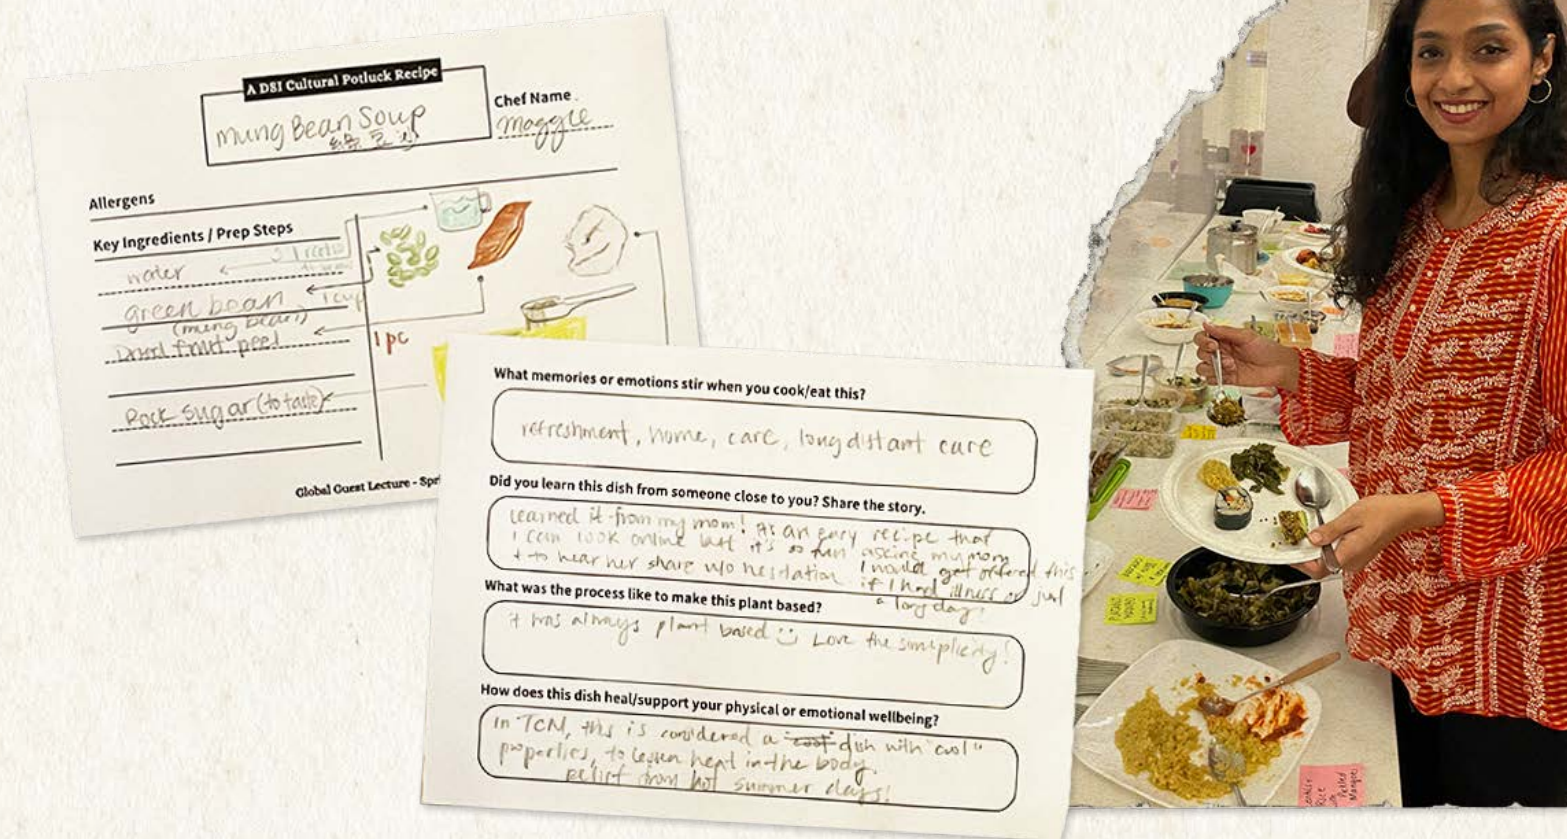 A DSI Cultural Potluck Recipe
Mung Bean Soup
Chef Name
Maggie
Allergens
Key Ingredients / Prep Steps
water
green bean 1 cup
(mung bean)
Dried fruit peel
1 pc
Rock sugar (to taste)
Global Guest Lecture - Spr
What memories or emotions stir when you cook/eat this?
refreshment, home, care, long distant care
Did you learn this dish from someone close to you? Share the story.
Learned it from my mom! It's an easy recipe that
I can look online but it's so fun asking my mom
+ to hear her share w/o hesitation I would get offered this
if I had illness or just
a long day!
What was the process like to make this plant based?
it was always plant based Love the simplicity!
How does this dish heal/support your physical or emotional wellbeing?
In TCM, this is considered a dish with "cool"
properties, to lessen heat in the body.
relief from hot summer days!
Rice
Mango